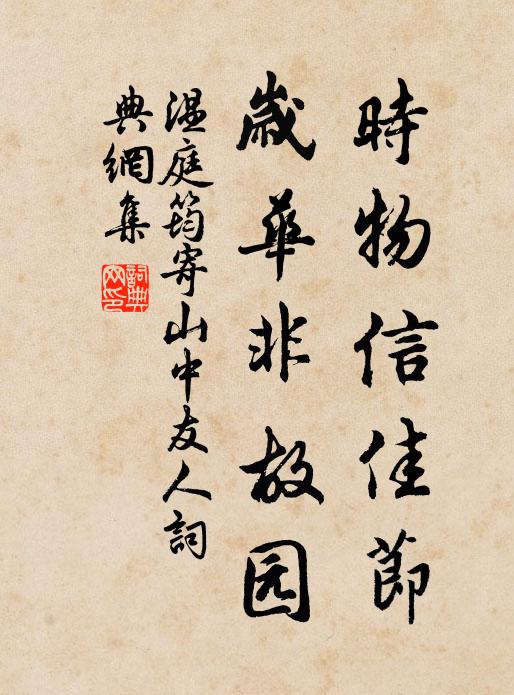 時物信佳節
歲華非故园
温庭筠寄山中友人詞
典網集
詞典
网印